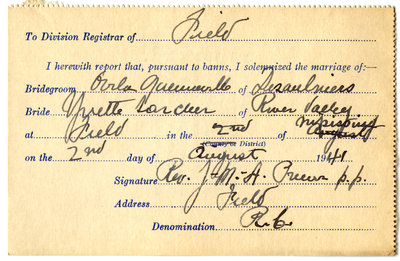 To Division Registrar of Field
I herewith report that, pursuant to banns, I solemnized the marriage of:—
Bridegroom of Desaulniers
Bride Yvette Porcher of River Valley
at Field in the 2nd of Nipissing August
(County or District)
on the 2nd day of August 1941
Signature Rev. J. M. A. p.p.
Address Field
Denomination R.C.